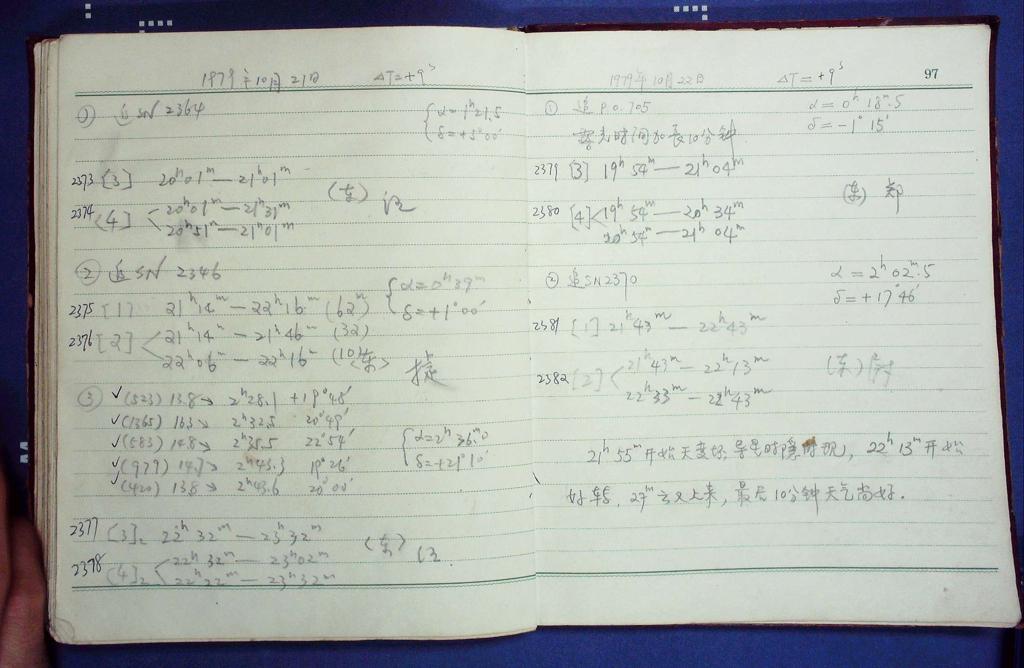 1979年10月21日 ΔT=+9ˢ
① 追 SN 2364 α=1ʰ21.5
δ=+5°00′
2373 [3] 20ʰ01ᵐ—21ʰ01ᵐ (东) 江
2374 [4] 20ʰ01ᵐ—21ʰ31ᵐ
20ʰ51ᵐ—21ʰ01ᵐ
② 追 SN 2346 α=0ʰ39ᵐ
δ=+1°00′
2375 [1] 21ʰ14ᵐ—22ʰ16ᵐ (62ᵐ)
2376 [2] 21ʰ14ᵐ—21ʰ46ᵐ (32)
22ʰ06ᵐ—22ʰ16ᵐ (10) (东)
③ ✓(523) 13.8→ 2ʰ28.1 +19°48′
✓(1365) 16.3→ 2ʰ32.5 20°49′
✓(583) 14.8→ 2ʰ35.5 22°54′ α=2ʰ36ᵐ.0
✓(979) 14.7→ 2ʰ43.3 19°26′ δ=+21°10′
✓(420) 13.8→ 2ʰ43.6 20°00′
2377 [3]₂ 22ʰ32ᵐ—23ʰ32ᵐ (东) 江
2378 [4]₂ 22ʰ32ᵐ—23ʰ02ᵐ
22ʰ22ᵐ—23ʰ32ᵐ
1979年10月22日 ΔT=+9ˢ 97
① 追 P.O.705 α=0ʰ18ᵐ.5
露光时间加长10分钟 δ=-1°15′
2379 [3] 19ʰ54ᵐ—21ʰ04ᵐ
(东) 郑
2380 [4] 19ʰ54ᵐ—20ʰ34ᵐ
20ʰ54ᵐ—21ʰ04ᵐ
② 追SN2370 α=2ʰ02ᵐ.5
δ=+17°46′
2381 [1] 21ʰ43ᵐ—22ʰ43ᵐ
2382 [2] 21ʰ43ᵐ—22ʰ13ᵐ (东)
22ʰ33ᵐ—22ʰ43ᵐ
21ʰ55ᵐ开始天变坏,导星时隐时现,22ʰ13ᵐ开始
好转,27ᵐ云又上来,最后10分钟天气尚好.